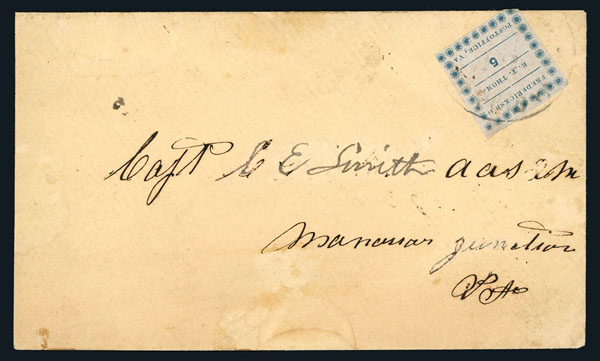 FREDERICKSB'G
R. T. THOM.
5
POSTOFFICE, VA
Capt C E Smith
Manassas Junction
Va